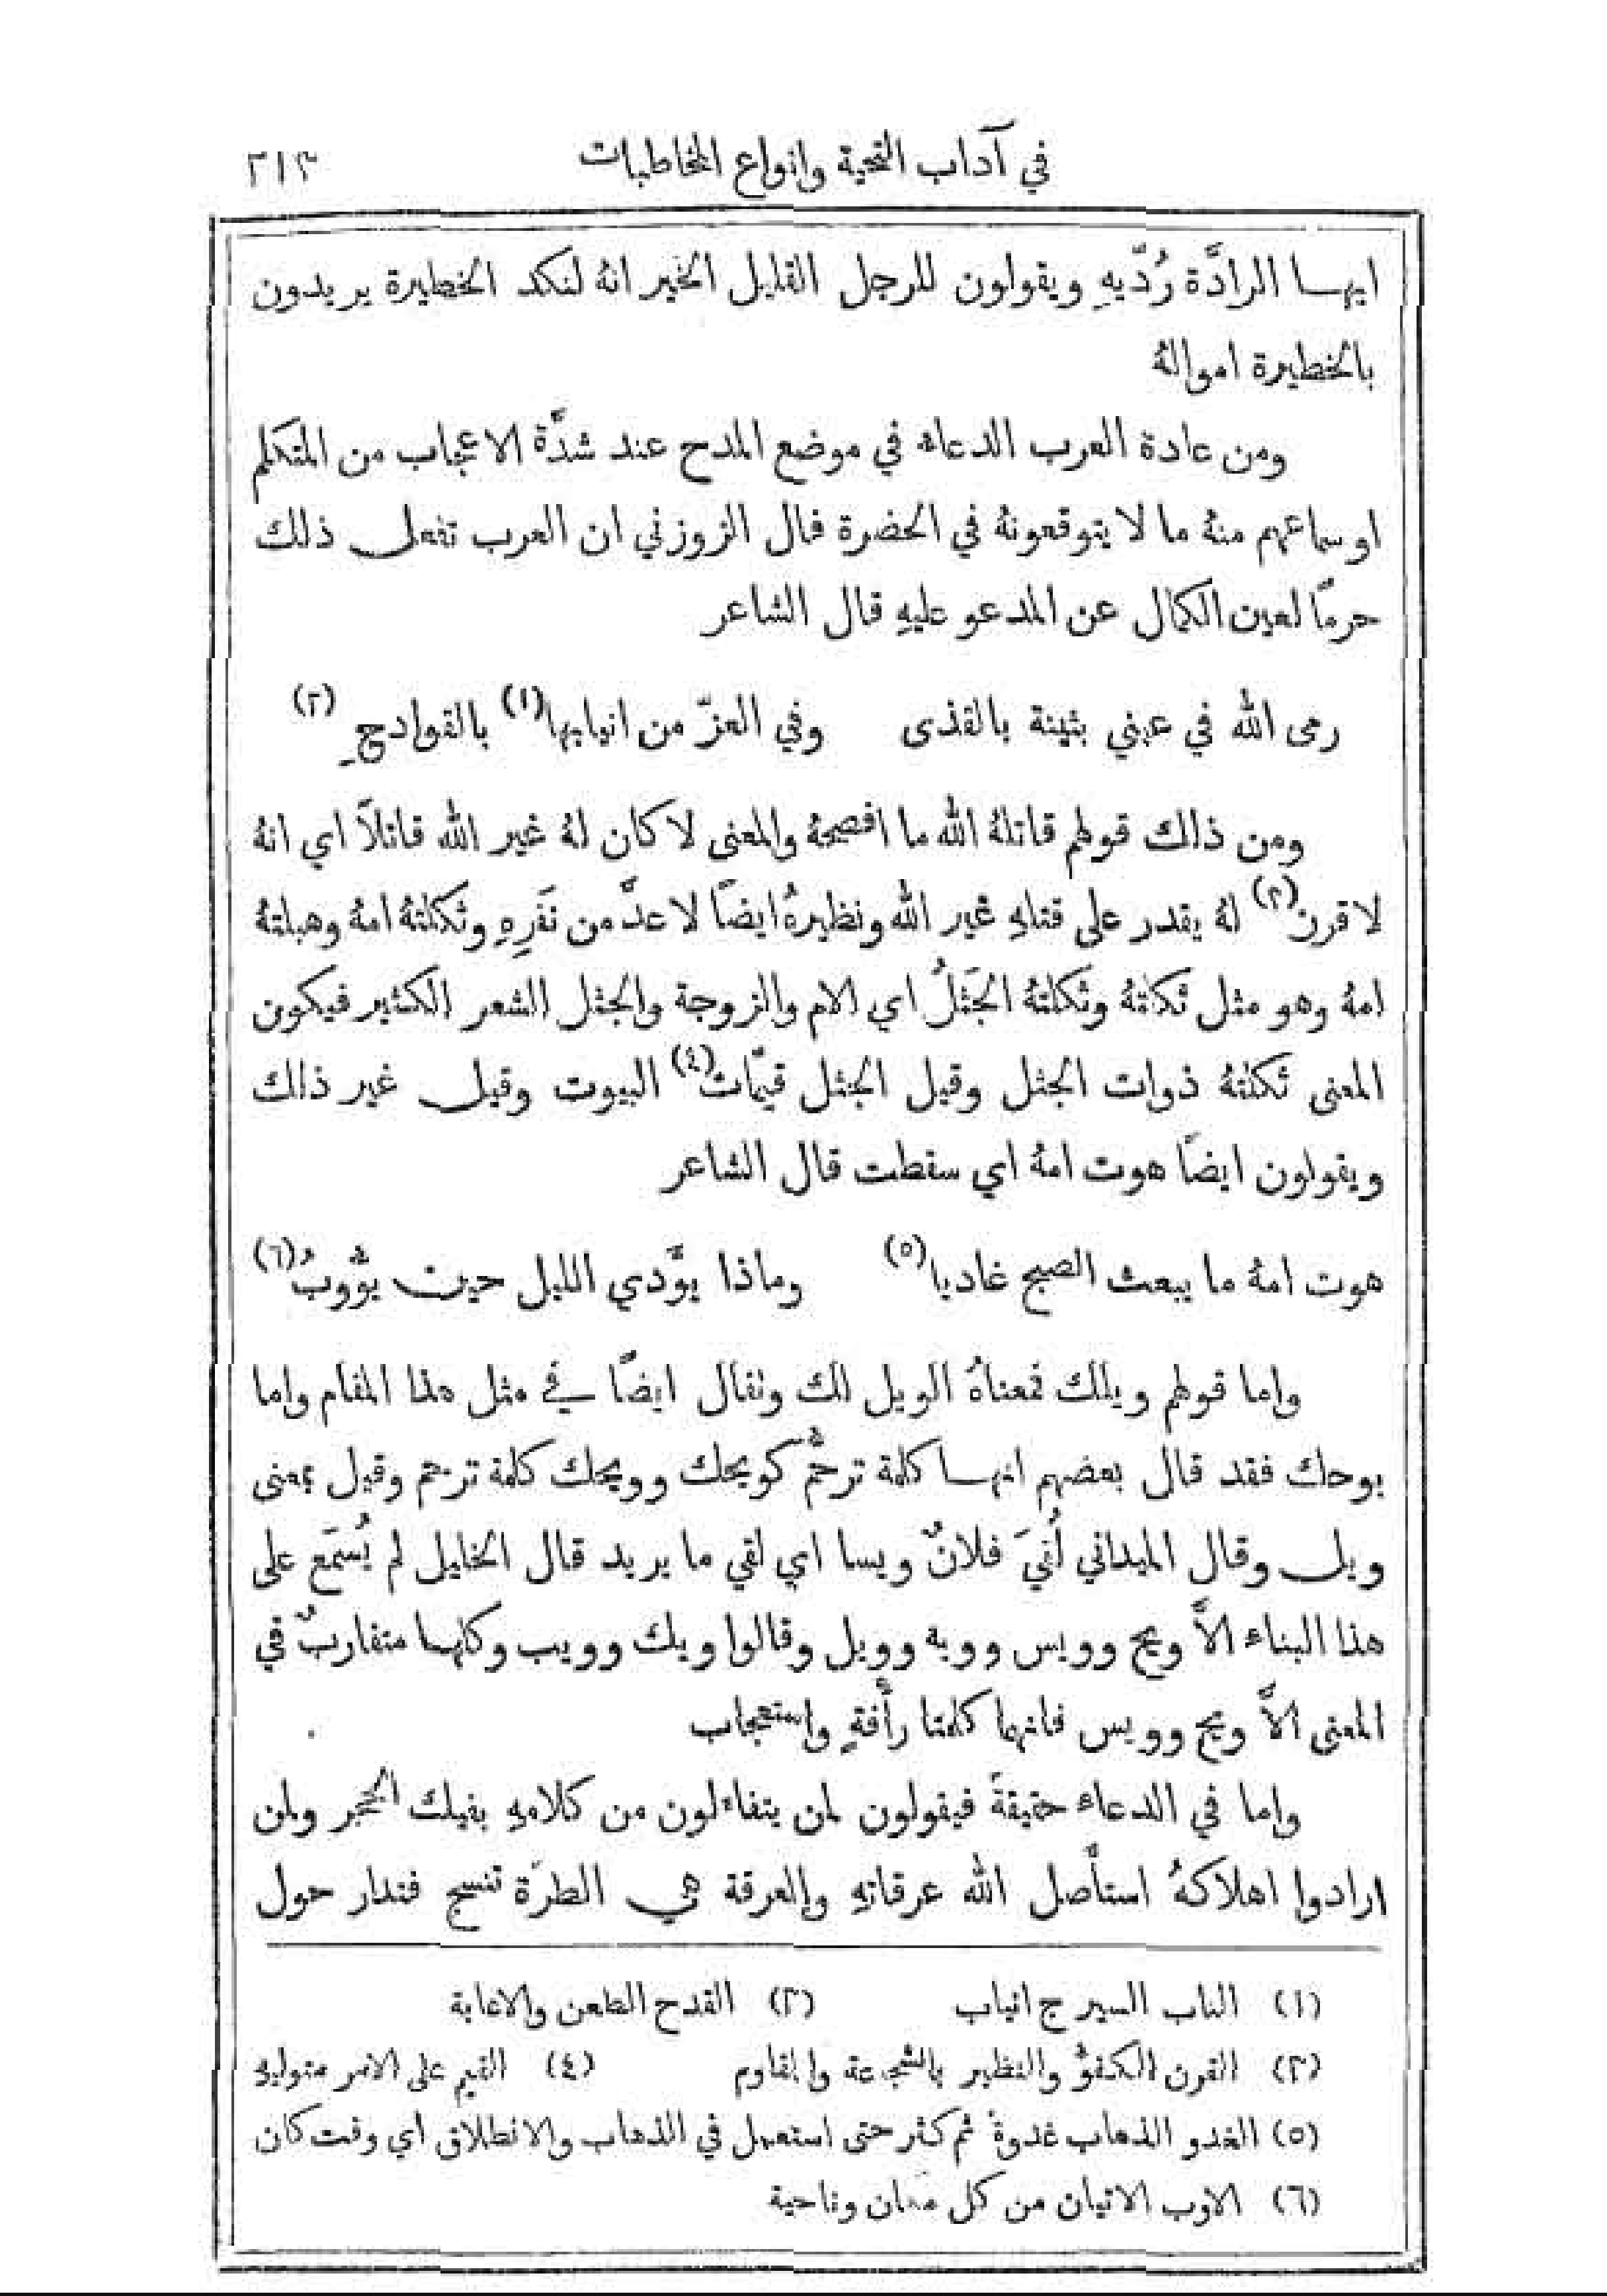 في آداب التحية وانواع المخاطبات ٢١٣
ايهـا الرادَّة رُدّيهِ ويقولون للرجل القليل الخير انهُ لنكد الحظيرة يريدون
بالحظيرة اموالهُ
ومن عادة العرب الدعاء في موضع المدح عند شدَّة الاعجاب من المتكلم
او سماعهم منهُ ما لا يتوقعونهُ في الحضرة قال الزوزني ان العرب تفعل ذلك
حرمًا لعين الكمال عن المدعو عليهِ قال الشاعر
رمى الله في عيني بثينة بالقذى وفي العزّ من انيابها(١) بالقوادحِ (٢)
ومن ذلك قولهم قاتلهُ الله ما افصحهُ والمعنى لا كان لهُ غير الله قاتلاً اي انهُ
لا قرن(٣) لهُ يقدر على قتلهِ غير الله ونظيرهُ ايضًا لا عدَّ من نَفَرِهِ وثكلتهُ امهُ وهبلتهُ
امهُ وهو مثل ثكلتهُ وثكلتهُ الجَثلُ اي الام والزوجة والجثل الشعر الكثير فيكون
المعنى ثكلتهُ ذوات الجثل وقيل الجثل قيّمات(٤) البيوت وقيل غير ذلك
ويقولون ايضًا هوت امهُ اي سقطت قال الشاعر
هوت امهُ ما يبعث الصبح غاديا(٥) وماذا يؤّدي الليل حين يؤُوبُ(٦)
واما قولهم ويلك فمعناهُ الويل لك وتقال ايضًا في مثل هذا المقام واما
بوحك فقد قال بعضهم انهـا كلمة ترحُّم كويحك وويحك كلمة ترحم وقيل بمعنى
ويل وقال الميداني لُقيَ فلانٌ ويسا اي لقي ما يريد قال الخليل لم يُسمَع على
هذا البناء الاَّ ويح وويس وويه وويل وقالوا ويك وويب وكلها متقاربٌ في
المعنى الاَّ ويح وويس فانهما كلمتا رأَفةٍ واستعجاب
واما في الدعاء حقيقةً فيقولون لمن يتفاءلون من كلامهِ بفيك الحجر ولمن
ارادوا اهلاكهُ استأصل الله عرقاتهِ والعرقة هي الطرّة تنسج فتدار حول
(١) الناب السير ج انياب (٢) القدح الطعن والاعابة
(٣) القرن الكفؤُ والنظير بالشجاعة والمقاوم (٤) القيم على الامر متوليهِ
(٥) الغدو الذهاب غدوةً ثم كثر حتى استعمل في الذهاب والانطلاق اي وقت كان
(٦) الاوب الاتيان من كل مكان وناحية